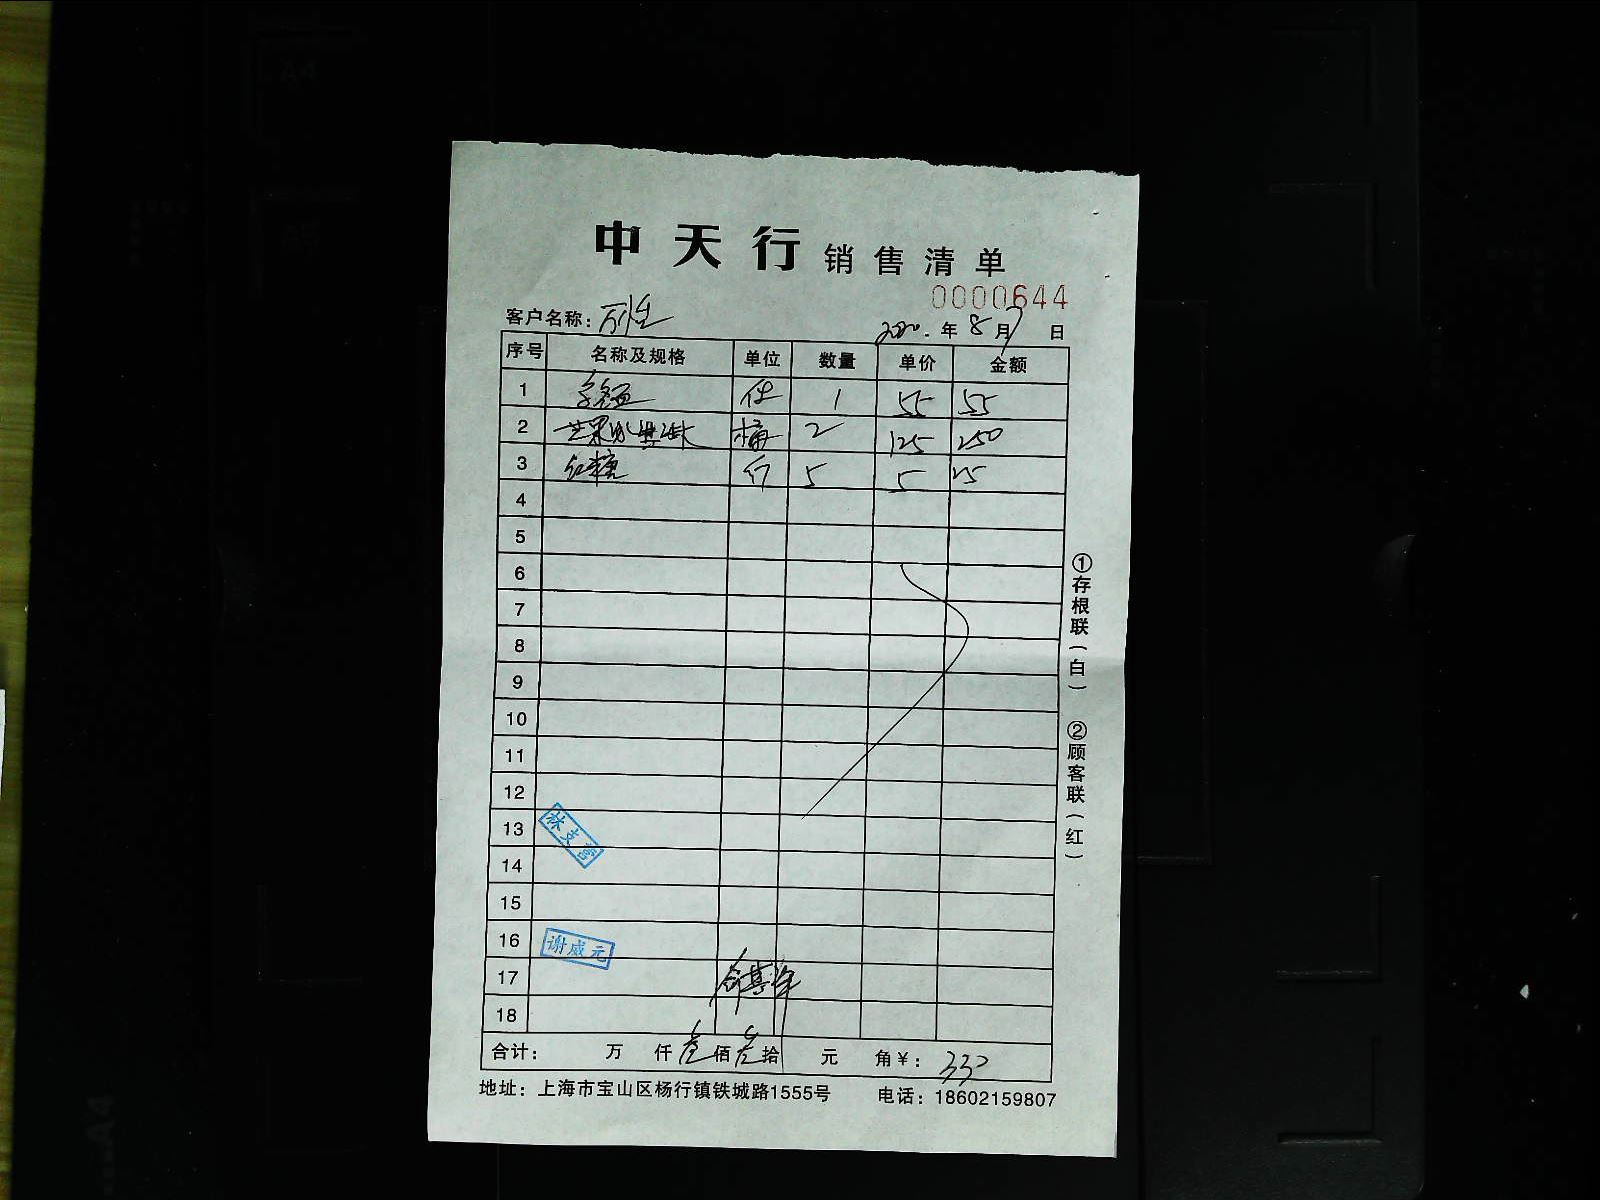 中天行销售清单
0000644
客户名称：万佳
2020.年8月7日
序号 名称及规格 单位 数量 单价 金额
1 件 1 55 55
2 芒果 桶 2 125 250
3 红糖 5 5 25
4
5
6
7
8
9
10
11
12
13 林支营
14
15
16 谢威元
17
18
合计： 万 仟叁佰叁拾 元 角￥：330
地址：上海市宝山区杨行镇铁城路1555号 电话：18602159807
①存根联（白） ②顾客联（红）